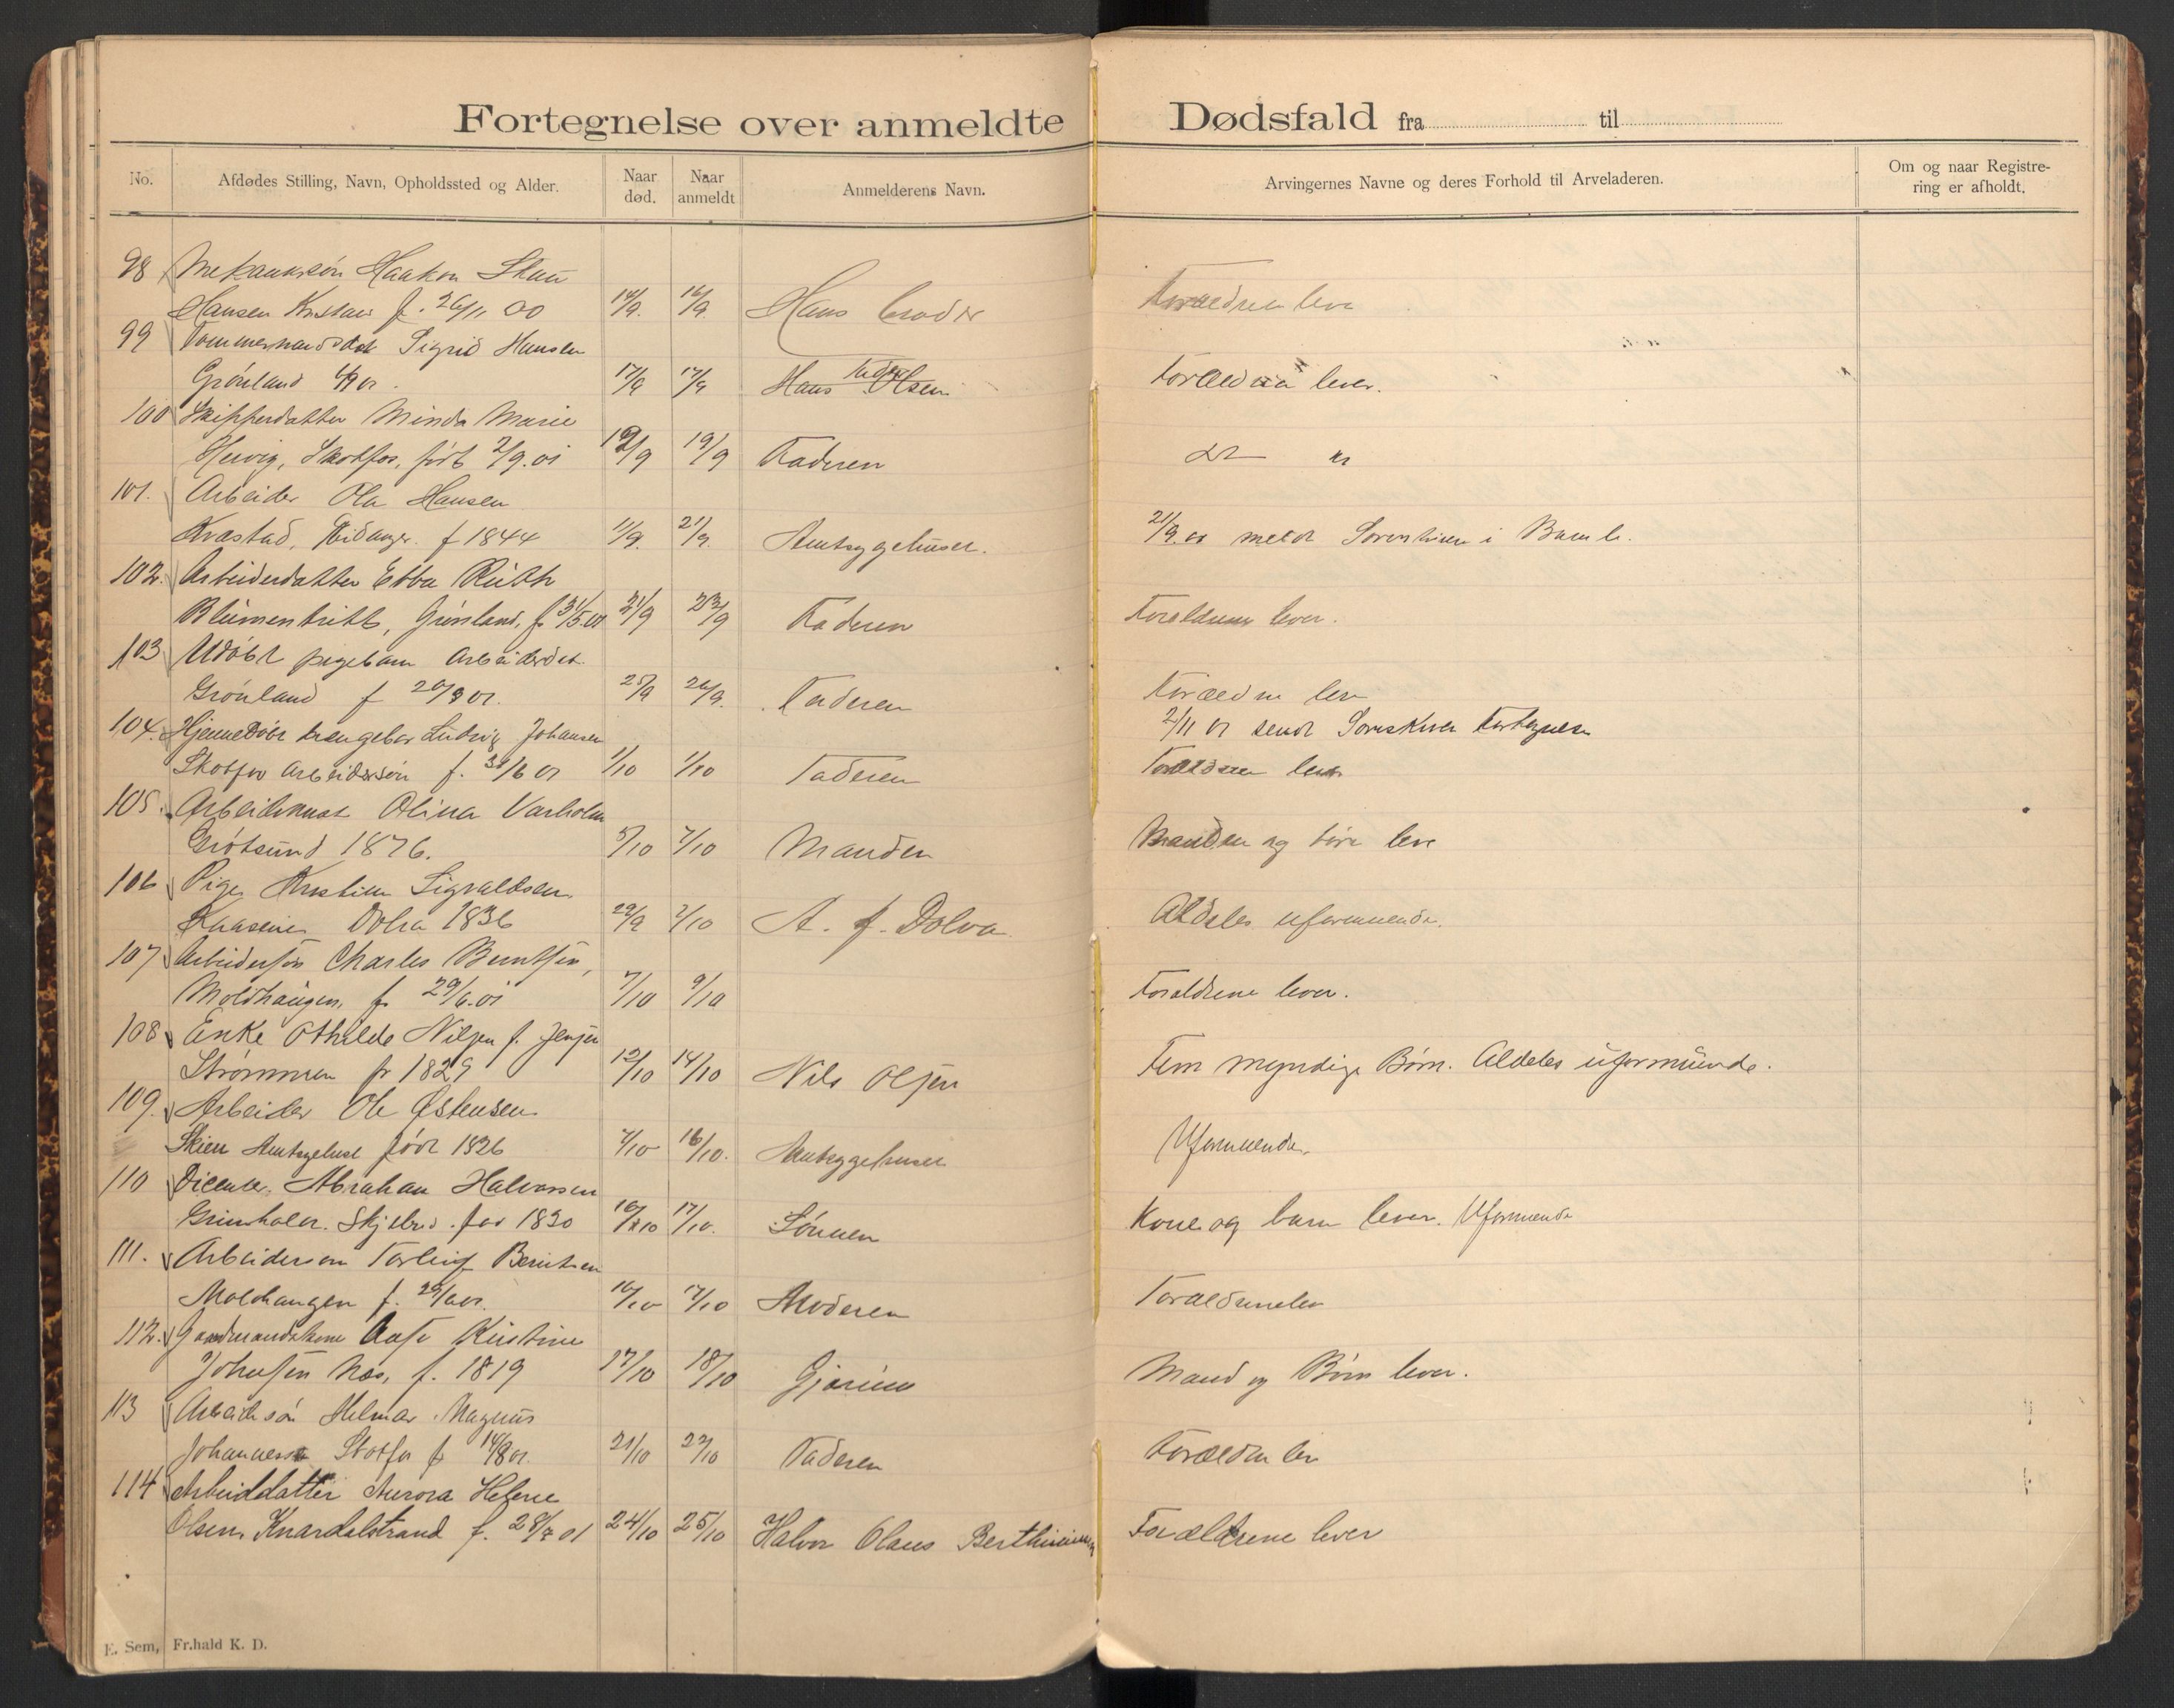 Fortegnelse over anmeldte Dødsfald fra til
No. Afdødes Stilling, Navn, Opholdssted og Alder. Naar død. Naar anmeldt Anmelderens Navn. Arvingernes Navne og deres Forhold til Arveladeren. Om og naar Registrering er afholdt.
98 Haakon
Hansen f. 26/11 00 14/9. 16/9. Hans
99 Sigrid Hansen
Grönland 17/9 17/9 Hans Olsen Forældrene lever.
100 Skipperdatter Minda Marie
Skotfos, født 2/9.01 19/9 19/9 Faderen
101. Arbeider Ole Hansen
Eidanger. f 1844 11/9. 21/9. Amtsygehuset. 21/9.01 meldt Sorenskriveren i Bamle.
102. Arbeiderdatter Ebba Ruth
Blumentritt, Grönland, f. 31/5.01 21/9 23/9 Faderen Forældrene lever.
103 Udöbt pigebarn Arbeiderdat.
Grönland f 20/9 01. 25/9 26/9. Faderen Forældrene lever
104. Hjemmedöbt Ludvig Johansen 2/11 01 sendt Fortegnelse
Skotfos Arbeidersön f. 30/6 01 1/10 1/10 Faderen Forældrene lever
105. Olina
1876. 5/10 7/10 Manden Manden og lever
106 Pige Kristine Sigvaldsen
Dolva 1836 29/9 2/10 A. J. Dolva Aldeles uformuende.
107 Arbeidersön Charles Berntsen,
Moldhaugen, f. 29/6.01 7/10 9/10 Forældrene lever.
108 Enke Othilde Nilsen f. Jensen
Strömmen f. 1829 12/10 14/10 Nils Olsen Fem myndige Börn. Aldeles uformuende.
109. Arbeider Ole Østensen
Skien Amtsygehuset født 1826 4/10 16/10. Amtsygehuset Uformuende.
110 Abraham Halvorsen
Grinholm. 1830 17/10. Sönnen Kone og barn lever. Uformuende
111. Arbeidersön Torleif Berntsen
Moldhaugen f. 29/6 01. 16/10 17/10 Moderen Forældrene lever
112. Kirstine
Johnsen f. 1819 17/10 18/10 Mand og Börn lever.
113 Arbeidersön Helmar Magnus
Johannessen Skotfos f. 14/8 01. 21/10 22/10 Faderen Forældrene lever
114 Arbeiddatter Aurora Helene
Olsen, Knardalstrand f. 28/7 01 24/10 25/10 Halvor Olaus Forældrene lever
E. Sem, Fr.hald K. D.